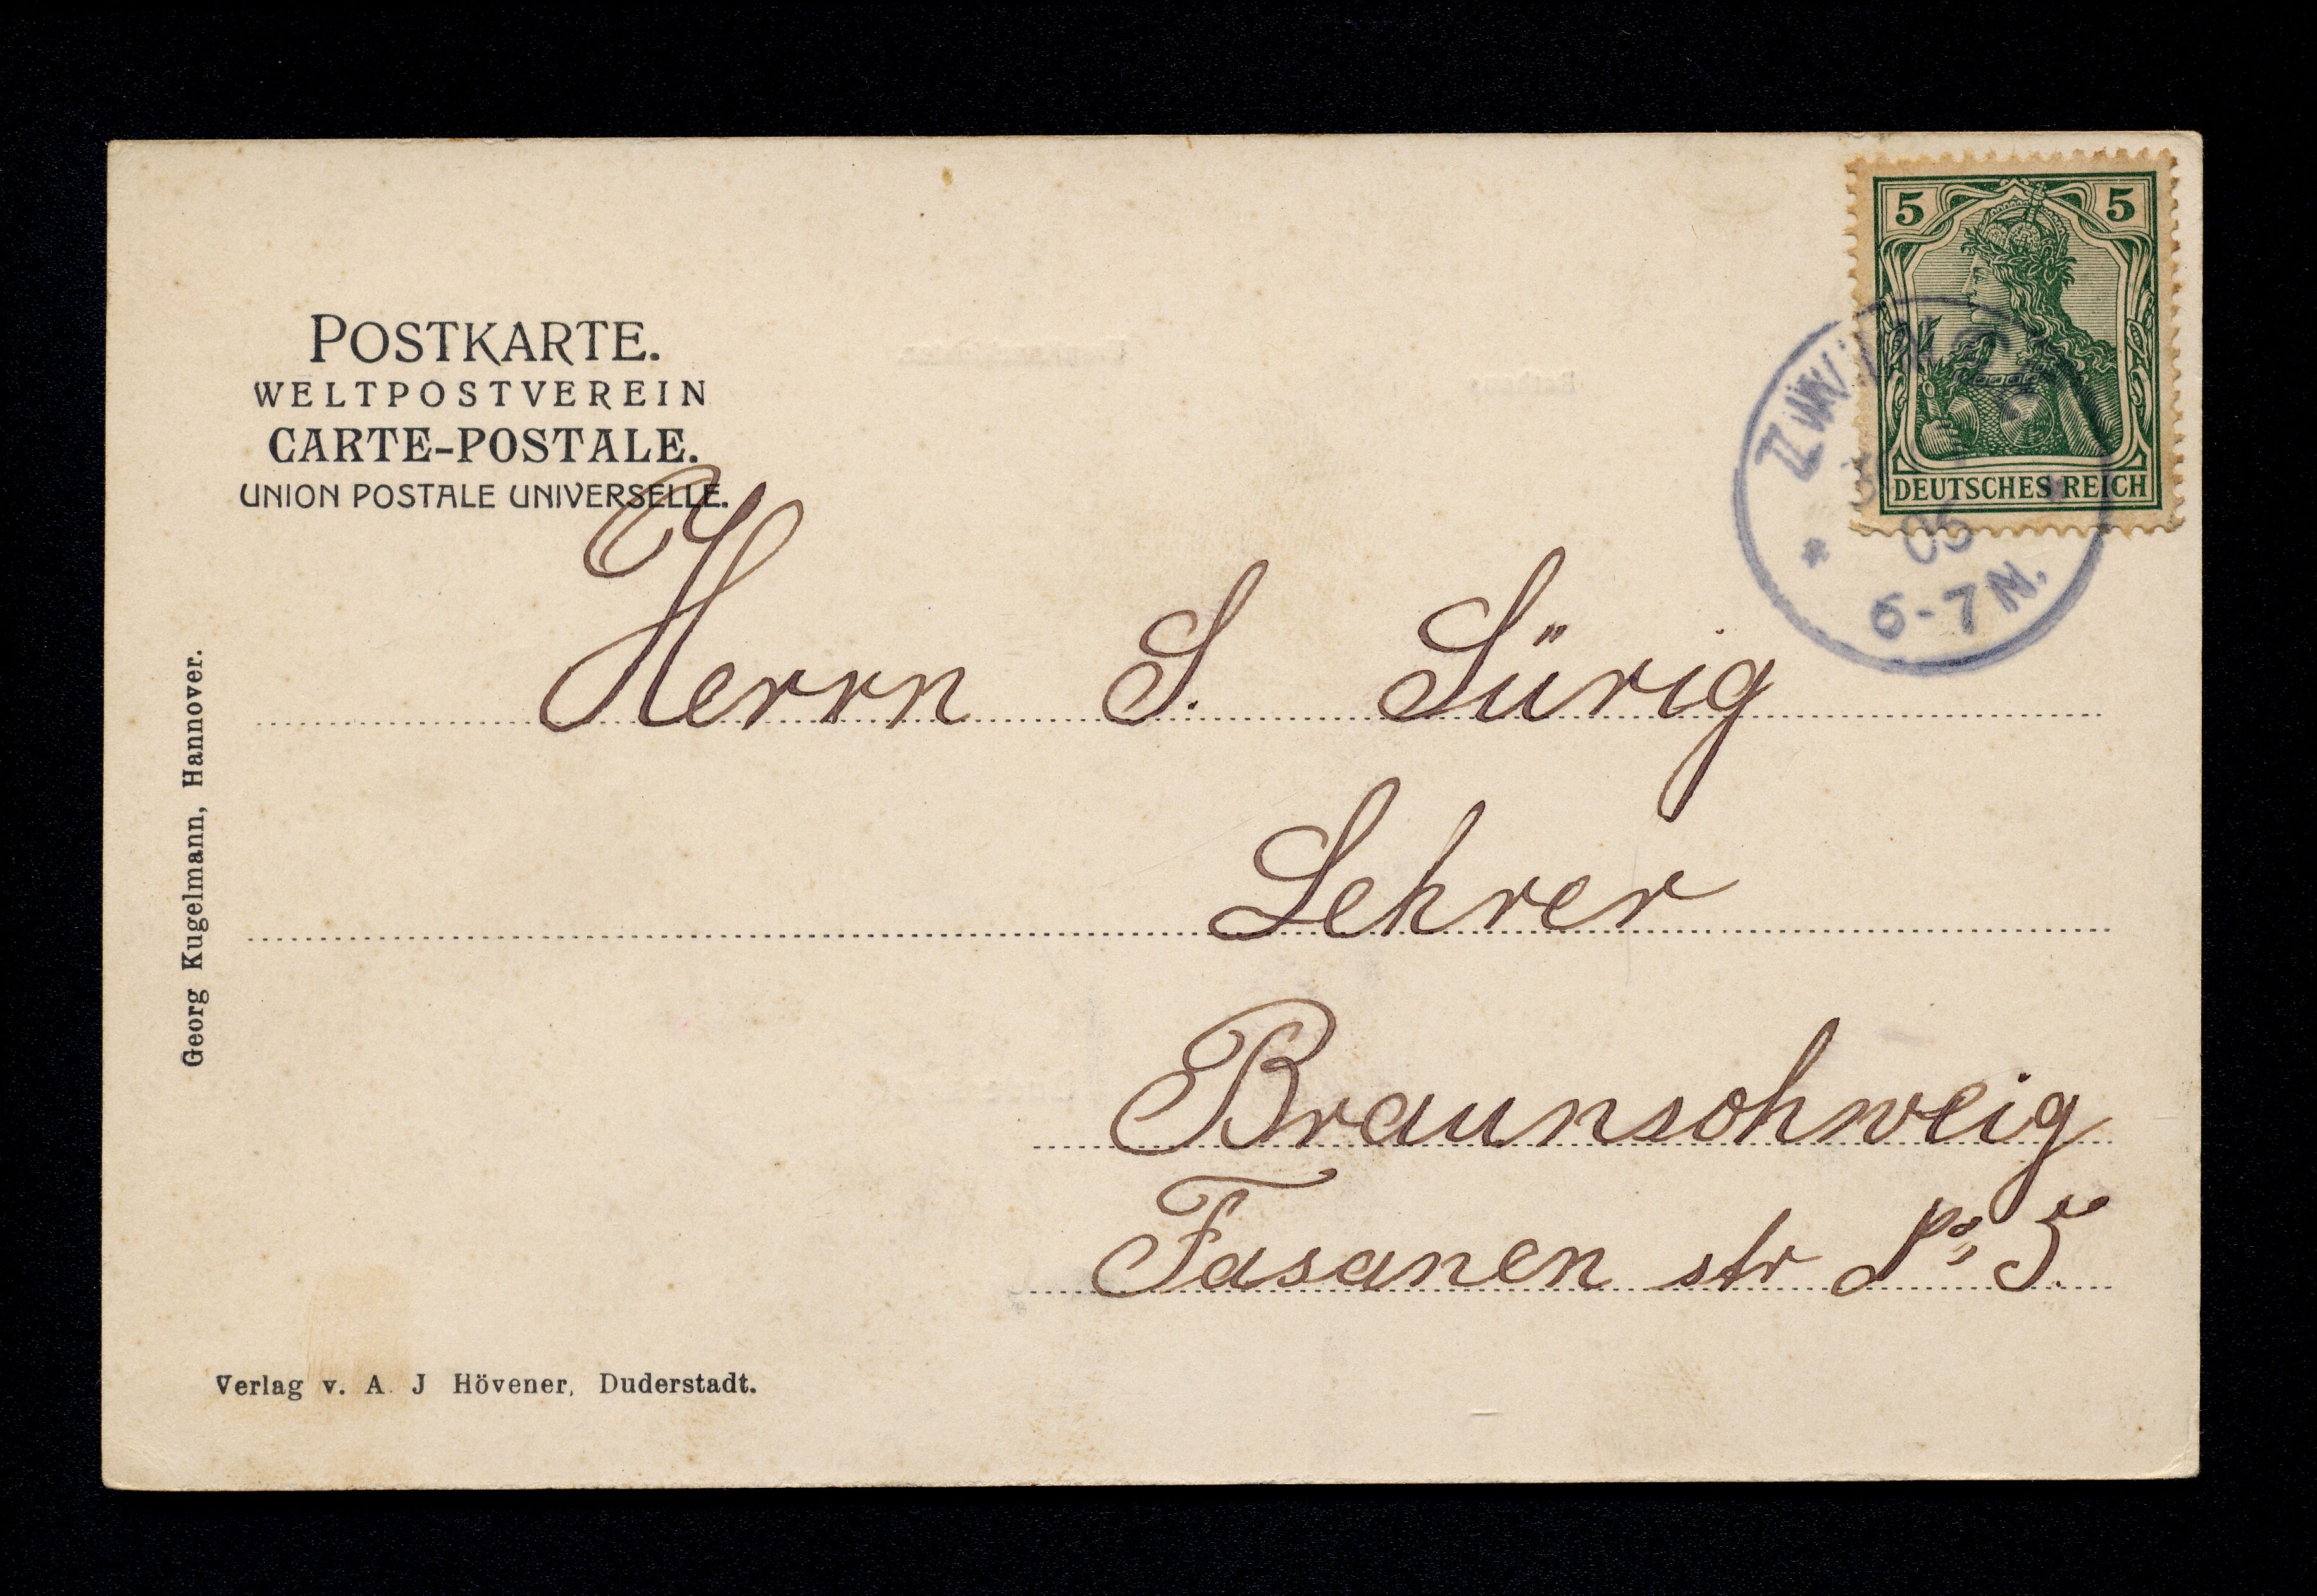 POSTKARTE.
WELTPOSTVEREIN
CARTE-POSTALE.
UNION POSTALE UNIVERSELLE.
5 5
DEUTSCHES REICH
05
6-7N.
Herrn S. Sürig
Lehrer
Braunschweig
Fasanen str No 5.
Georg Kugelmann, Hannover.
Verlag v. A. J Hövener, Duderstadt.